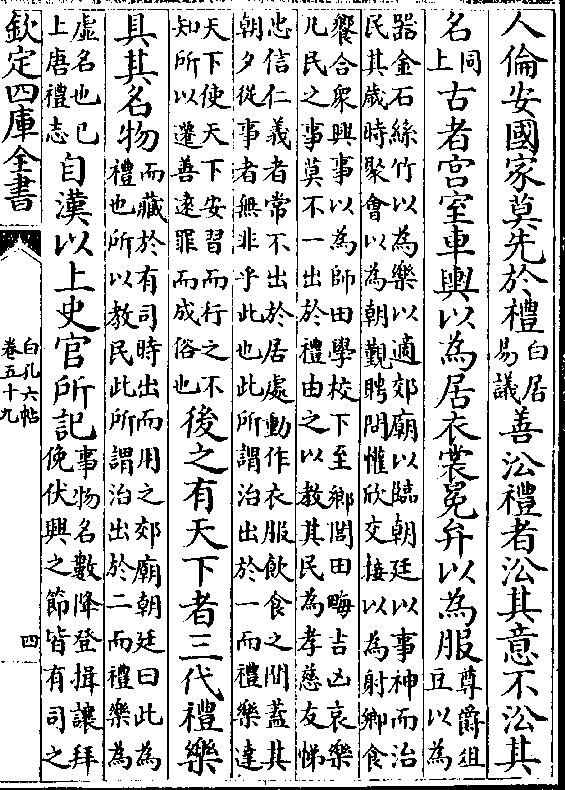 人倫安國家莫先於禮白居易議善㳂禮者㳂其意不㳂其
名同上古者宫室車輿以為居衣裳冕弁以為服尊爵俎豆以為
器金石絲竹以為樂以適郊廟以臨朝廷以事神而治
民其歲時聚會以為朝覲聘問懽欣交接以為射鄉食
饗合衆興事以為師田學校下至鄉閭田畮吉凶哀樂
凡民之事莫不一出於禮由之以教其民為孝慈友悌
忠信仁義者常不出於居處動作衣服飲食之間蓋其
朝夕從事者無非乎此也此所謂治出於一而禮樂達
天下使天下安習而行之不知所以遷善逺罪而成俗也後之有天下者三代禮樂
具其名物而藏於有司時出而用之郊廟朝廷曰此為禮也所以教民此所謂治出於二而禮樂為
虛名也已上唐禮志自漢以上史官所記事物名數降登揖讓拜俛伏興之節皆有司之
欽定四庫全書
白孔六帖
卷五十九
四